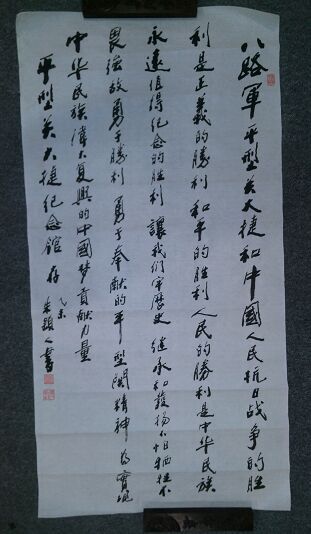 八路军平型关大捷和中國人民抗日战争的胜
利是正義的勝利和平的胜利人民的勝利是中华民族
永遠值得纪念的胜利讓我们牢歷史继承和發扬不怕牺牲不
畏强敌勇于勝利勇于奉献的平型関精神为實現
中华民族偉大复興的中國梦贡献力量
平型关大捷纪念馆存 乙未